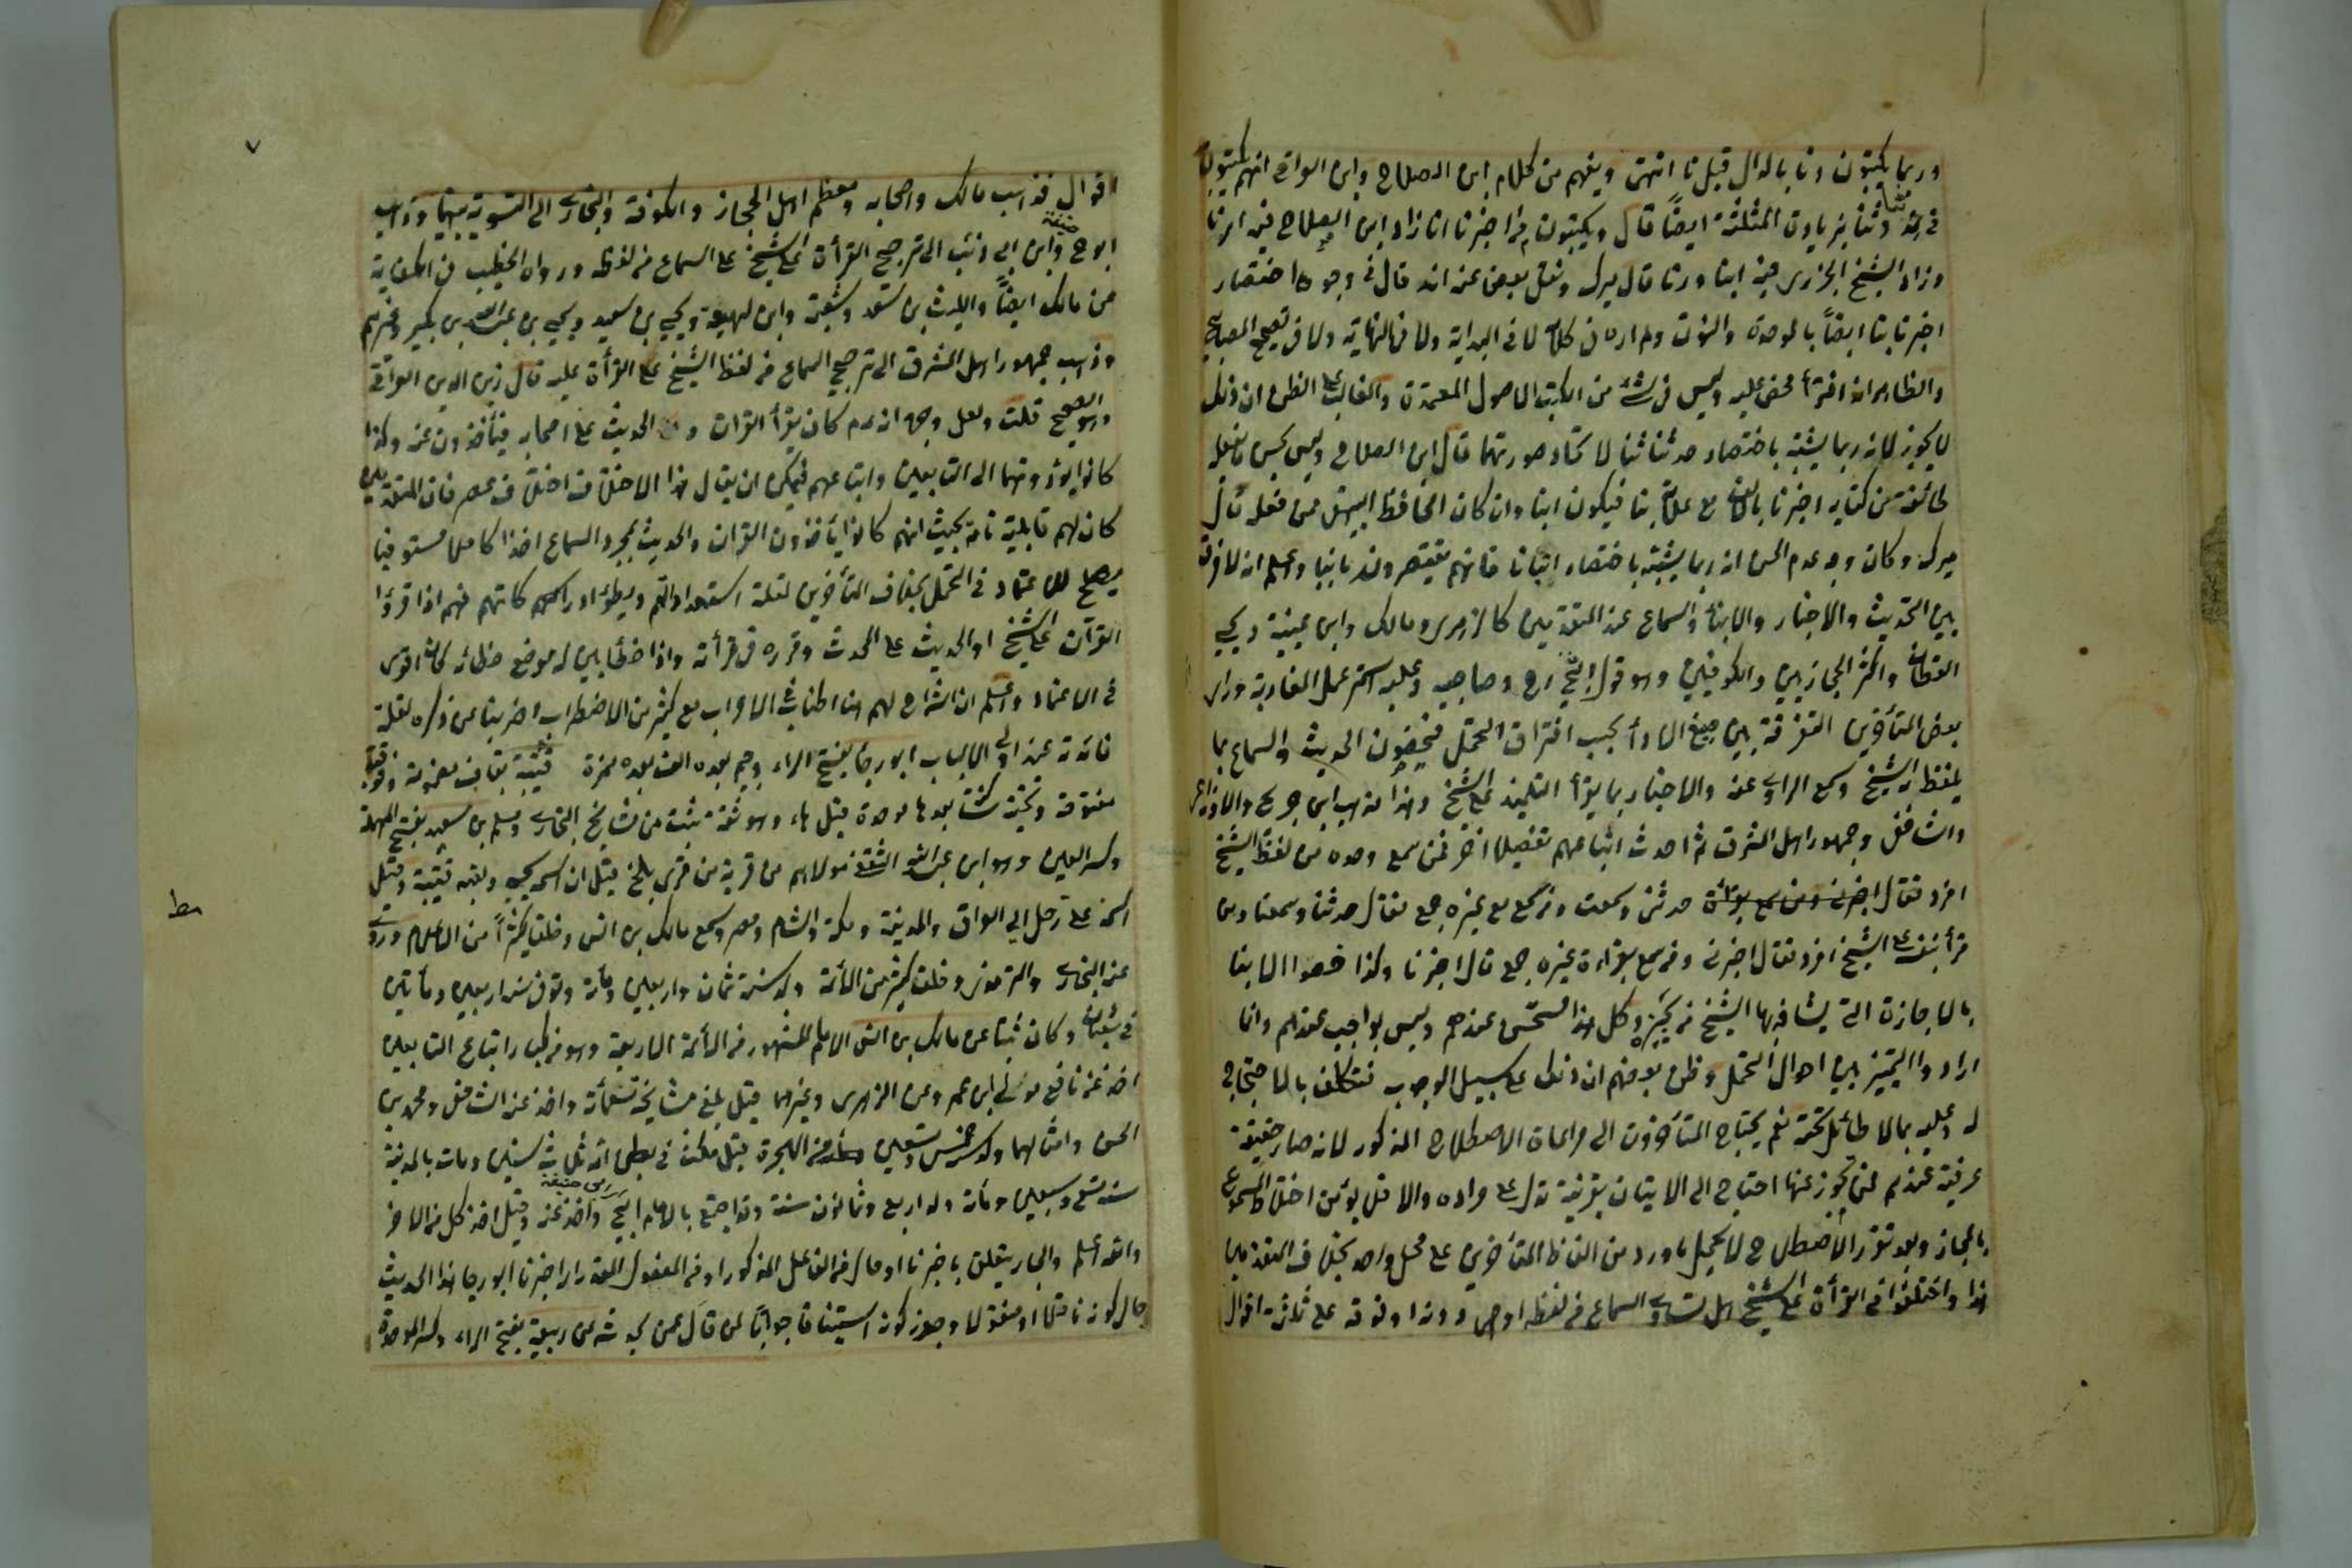 وربما يكتبون دنا بالدال قبل نا انتهى ويفهم من كلام ابن الصلاح وابن العراقي انهم يكتبون
في حدثنا دثنا بزيادة المثلثة ايضا قال ويكتبون من اخبرنا انا زاد ابن الصلاح فيه ارنا
وزاد الشيخ الجزري فيه ابنا ورنا قال ميرك ونقل بعض عنه انه قال في وجوه اختصار
اخبرنا بنا ايضا بالموحدة والنون ولم اره في كلامه لا في البداية ولا في النهاية ولا في تصحيح المصابيح
والظاهر انه افترأ محض عليه وليس في شئ من الكتب الاصول المعتمدة والغالب على الظن ان ذلك
لا يجوز لانه ربما يشتبه باختصار حدثنا ثنا لاتحاد صورتهما قال ابن الصلاح وليس بحسن ما يفعله
طائفة من كتابة اخبرنا بالف مع علامة بنا فيكون ابنا وان كان الحافظ البيهقي ممن فعله قال
ميرك وكان وجه عدم الحسن انه ربما يشتبه باختصار انبانا فانهم يقتصرونه بانبا واعلم انه لا فرق
بين التحديث والاخبار والانبأ والسماع عند المتقدمين كالزهري ومالك وابن عيينة ويحيى
القطان واكثر الحجازيين والكوفيين وهو قول ابي ح وصاحبيه وعليه استمر عمل المغاربة وراى
بعض المتأخرين التفرقة بين صيغ الادأ بحسب افتراق التحمل فيخصون الحديث والسماع بما
يلفظ به الشيخ وسمع الراوي عنه والاخبار بما يقرأ التلميذ على الشيخ وهذا مذهب ابن جريج والاوزاعي
والشافعي وجمهور اهل المشرق ثم احدث اتباعهم تفصيلا اخر فمن سمع وحده من لفظ الشيخ
افرد فقال حدثني وسمعت ومن سمع مع غيره جمع فقال حدثنا وسمعنا ومن
قرأ بنفسه على الشيخ افرد فقال اخبرني ومن سمع بقراءة غيره جمع قال اخبرنا وكذا خصوا الانبا
بالاجازة التي يشافه بها الشيخ من يجيزه وكل هذا مستحسن عندهم وليس بواجب عندهم وانما
ارادوا التمييز بين احوال التحمل وظن بعضهم ان ذلك على سبيل الوجوب فتكلف بالاحتجاج
له وعليه بما لا طائل تحته نعم يحتاج المتأخرون الى مراعاة الاصطلاح المذكور لانه صار حقيقة
عرفية عندهم فمن تجوز عنها احتاج الى الاتيان بقرينة تدل على مراده والا فلا يؤمن اختلاط المسموع
بالمجاز وبعد تقرر الاصطلاح لا يحمل ما ورد من الفاظ المتأخرين على محمل واحد بخلاف المتقدمين
هذا واختلفوا في القرأة على الشيخ هل تساوي السماع من لفظه او هي دونه او فوقه على ثلثة اقوال
٧
اقوال فذهب مالك واصحابه ومعظم اهل الحجاز والكوفة والبخاري الى التسوية بينهما وذهب
ابو حنيفة وابن ابي ذئب الى ترجيح القرأة على الشيخ على السماع من لفظه ورواه الخطيب في الكفاية
عن مالك ايضا والليث بن سعد وشعبة وابن لهيعة ويحيى بن سعيد ويحيى بن عبد الله بن بكير وغيرهم
وذهب جمهور اهل المشرق الى ترجيح السماع من لفظ الشيخ على القرأة عليه قال زين الدين العراقي
وهو الصحيح قلت ولعل وجهه انه عم كان يقرأ القرآن والحديث على اصحابه فيأخذون عنه وكذا
كانوا يؤدونهما الى التابعين واتباعهم فيمكن ان يقال هذا الاختلاف اختلاف عصر فان المتقدمين
كان لهم قابلية تامة بحيث انهم كانوا يأخذون القرآن والحديث بمجرد السماع اخذا كاملا مستوفيا
يصلح للاعتماد في التحمل بخلاف المتأخرين لقلة استعدادهم وبطؤ ادراكهم فهم اذا قرؤا
القرآن على الشيخ او الحديث على المحدث وقرره في قرأته واذا خطأ بين له موضع خطائه كان اقوى
في الاعتماد واعلم ان الشراح لهم هنا اطناب في الاعراب مع كثير من الاضطراب اضربنا عن ذكره لقلة
فائدته عند اولي الالباب ابو رجا بفتح الراء وجيم بعده الف بعده همزة قتيبة بقاف مضمومة وفوقية
مفتوحة وتحتية ساكنة بعدها موحدة قبل هاء وهو ثقة ثبت من مشايخ البخاري ومسلم بن سعيد بفتح المهملة
وكسر العين وهو ابن عبد الله الثقفي مولاهم من قرية من قرى بلخ قيل ان اسمه يحيى ولقبه قتيبة وقيل
اسمه على رحل الى العراق والمدينة ومكة والشام ومصر وسمع مالك بن انس وخلقا كثيرا من الاعلام وروى
عنه البخاري والترمذي وخلق كثير من الائمة ولد سنة ثمان واربعين ومأة وتوفي سنة اربعين ومأتين
في شعبان وكان ثبتا عن مالك بن انس الامام المشهور من الائمة الاربعة وهو من كبار اتباع التابعين
اخذ عن نافع مولى ابن عمر وعن الزهري وغيرهما قيل بلغ مشايخه تسعمأة واخذ عنه الشافعي ومحمد بن
الحسن وامثالهما ولد سنة خمس وتسعين من الهجرة قيل مكث في بطن امه ثلاث سنين ومات بالمدينة
سنة تسع وسبعين ومأة وله اربع وثمانون سنة وقد اجتمع بالامام ابي حنيفة واخذ عنه وقيل اخذ كل من الاخر
والله اعلم والجار يتعلق باخبرنا او حال من الفاعل المذكور او من المفعول المقدر اي اخبرنا ابو رجا هذا الحديث
حال كونه ناقلا او منقولا وجوز كونه استينافا جوابا لمن قال عمن يحدثه عن ربيعة بفتح الراء وكسر الموحدة